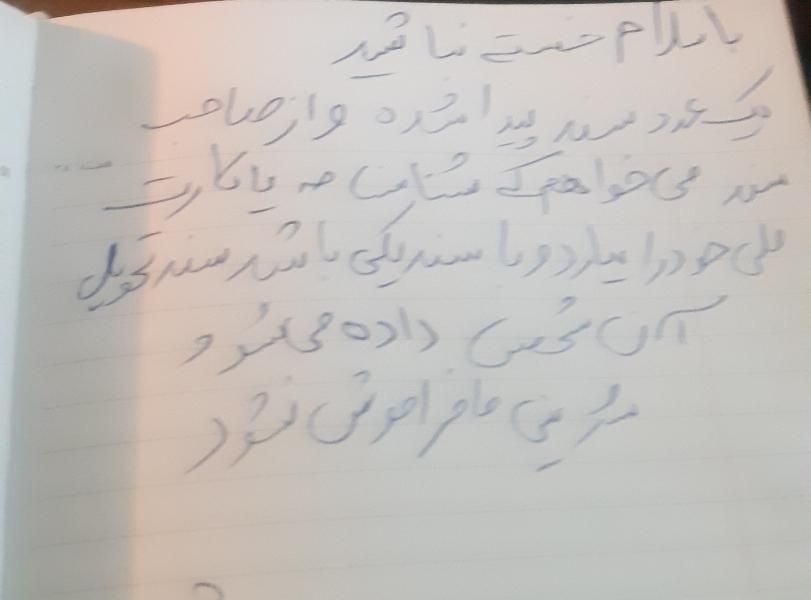 با سلام خسته نباشید
یک عدد سند پیدا شده و از صاحب
سند می خواهم که شناسنامه یا کارت
ملی خود را بیارد و با سند یکی باشد سند تحویل
آن شخص داده می شود و
مژدگانی ما فراموش نشود